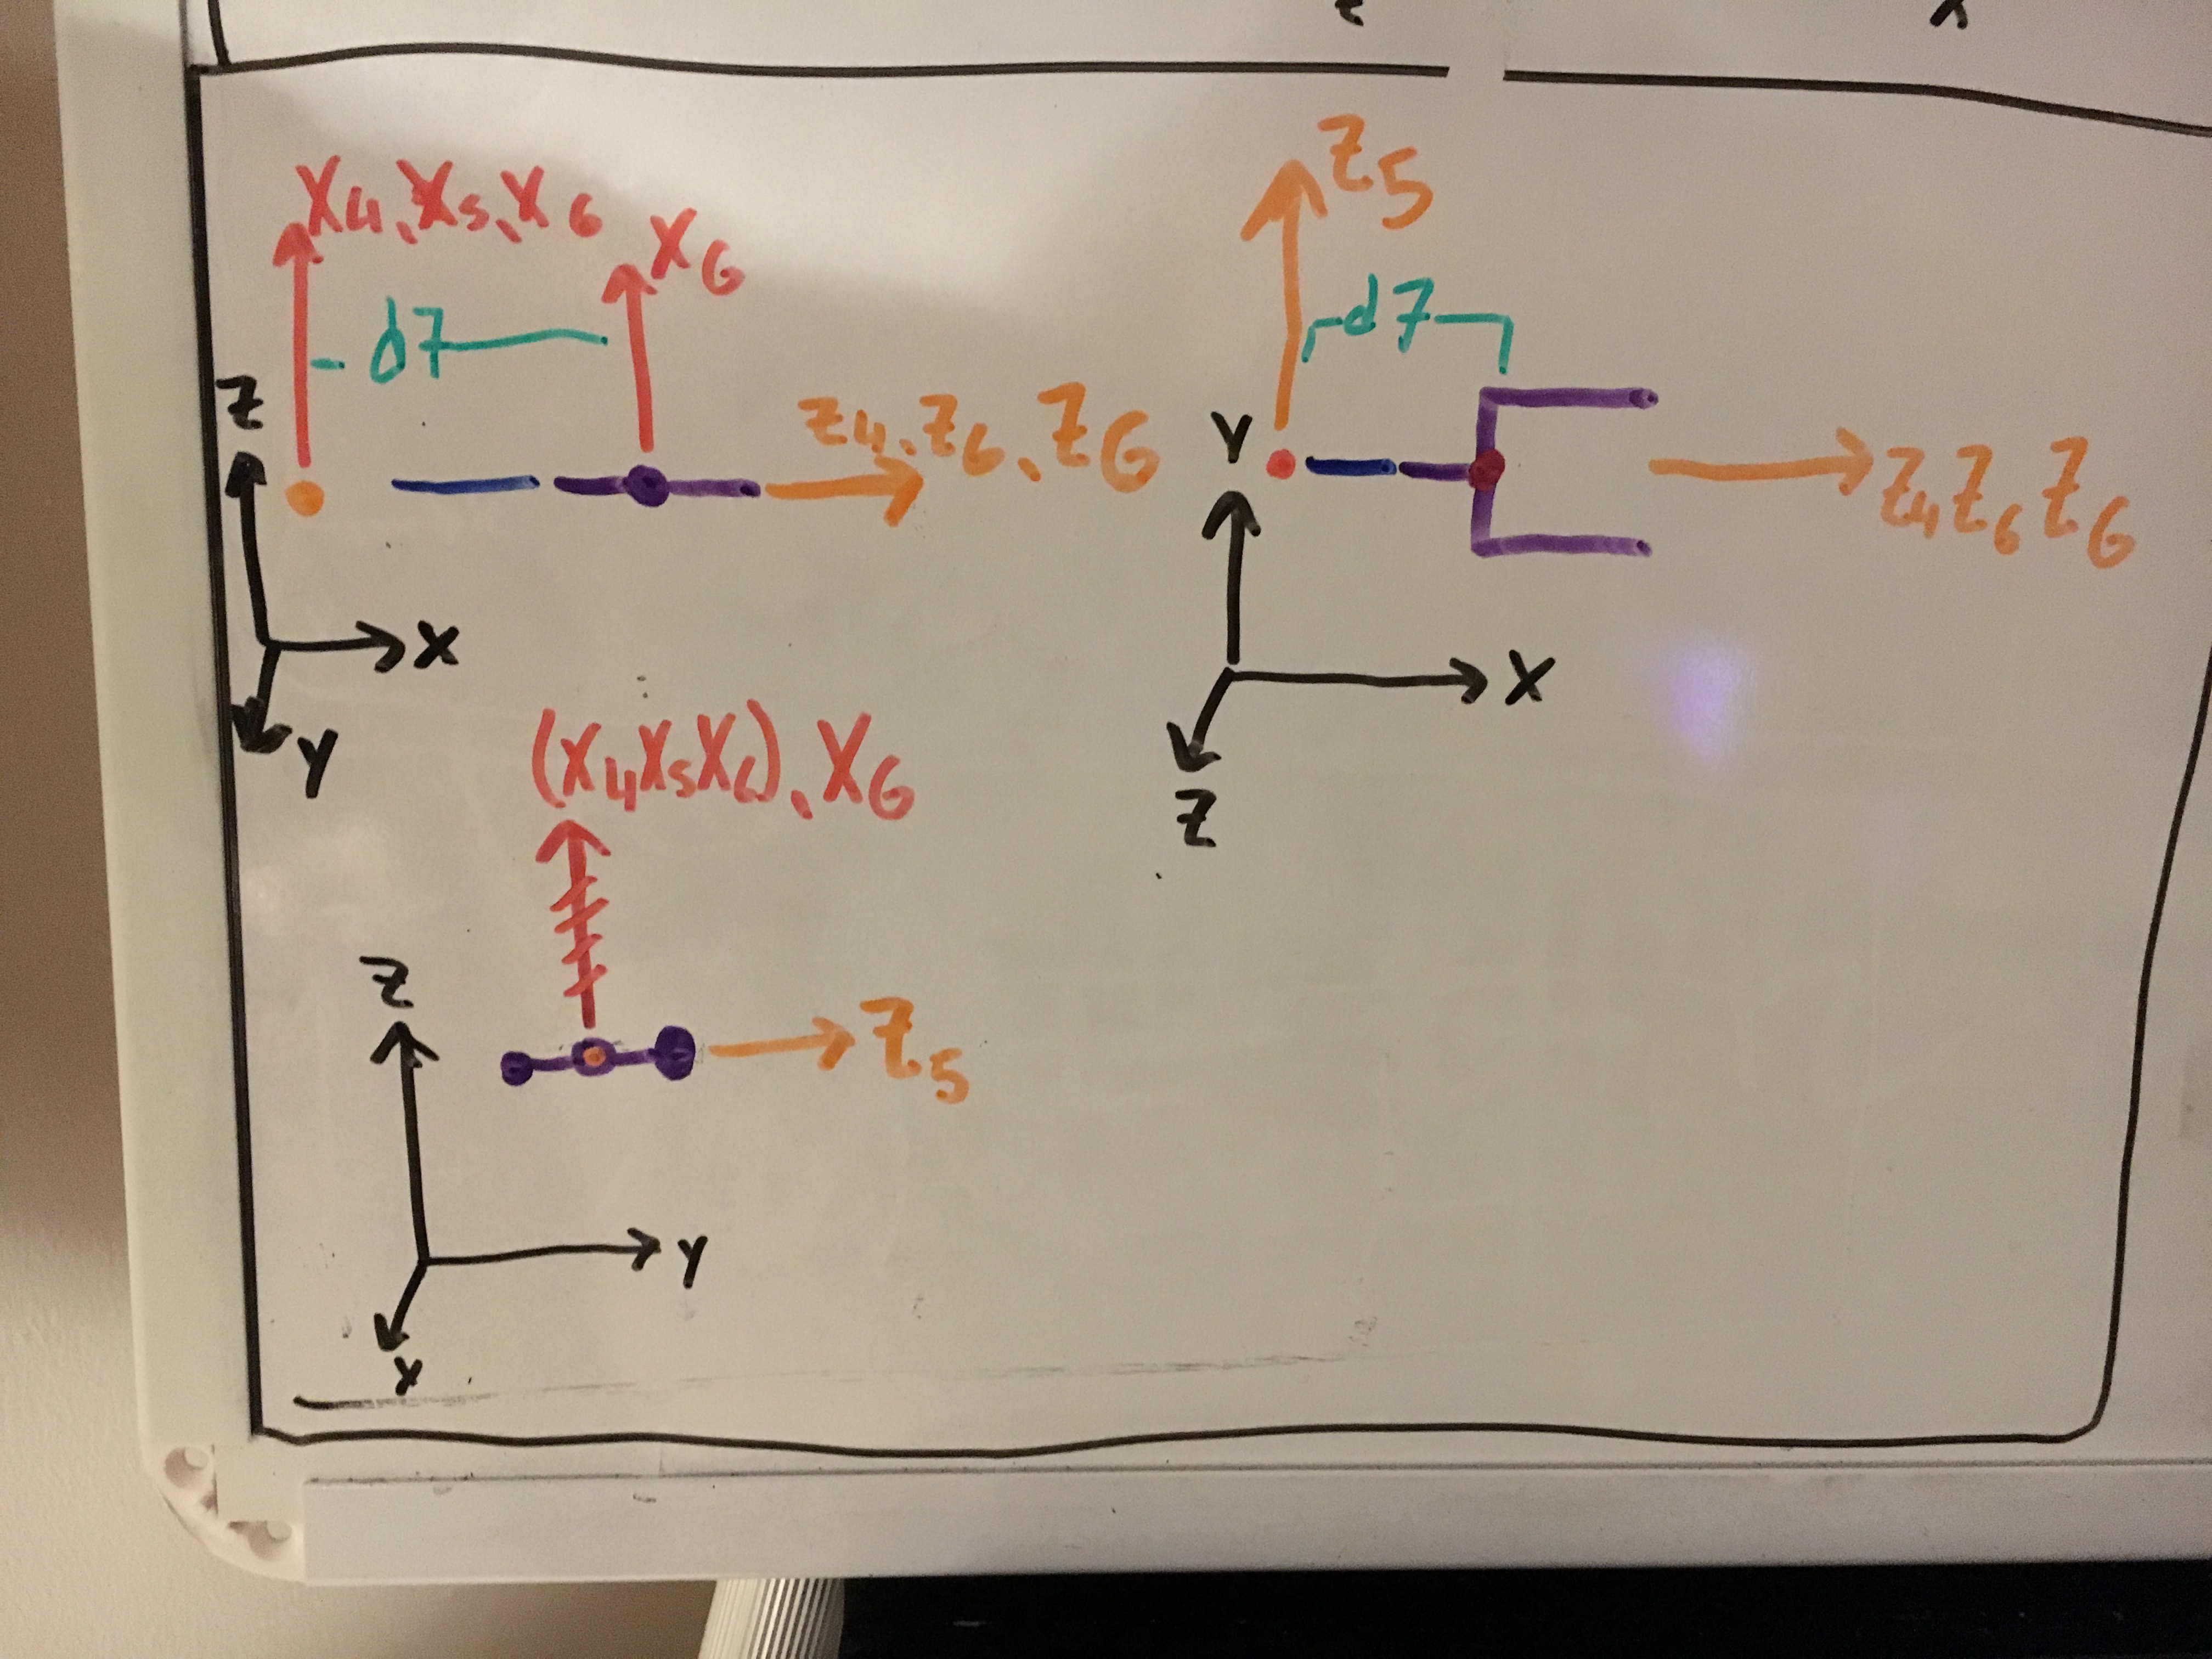 X4, X5, X6
XG
d7
Z
Z4, Z6, ZG
X
Y
Z5
d7
Y
Z4 Z6 ZG
X
Z
(X4X5X6), XG
Z
Z5
Y
X